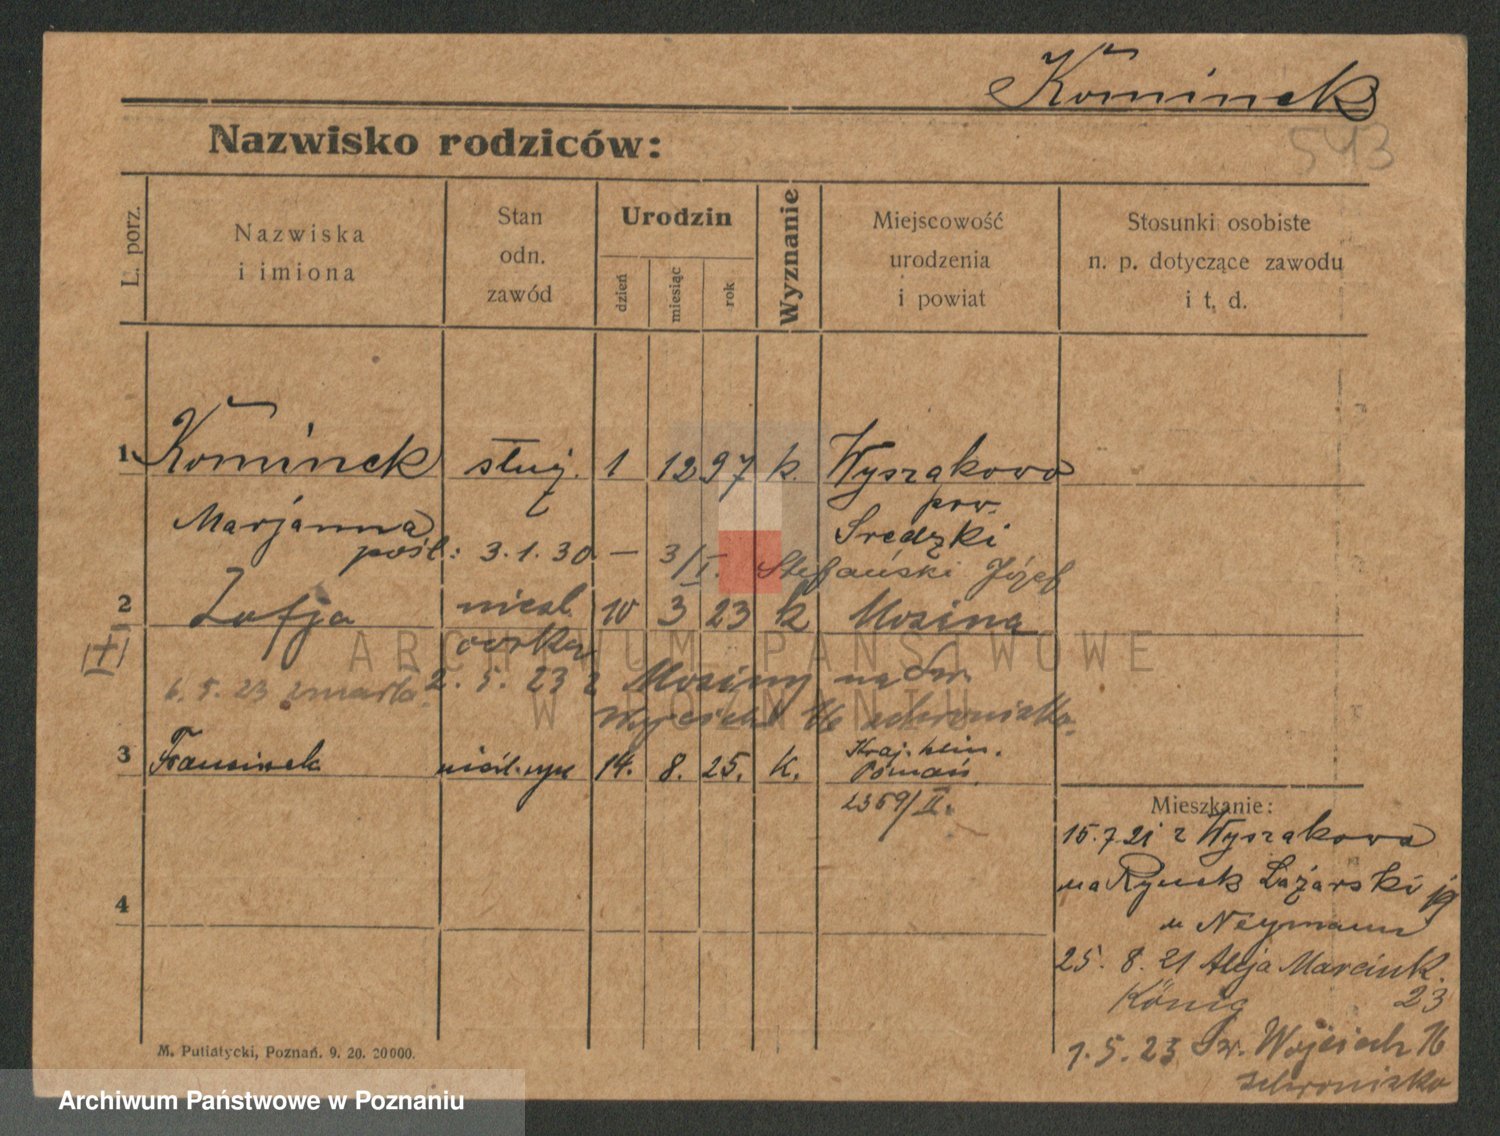 Kominek
543
Nazwisko rodziców:
L. porz.
Nazwiska
i imiona
Stan
odn.
zawód
Urodzin
dzień
miesiąc
rok
Wyznanie
Miejscowość
urodzenia
i powiat
Stosunki osobiste
n. p. dotyczące zawodu
i t. d.
1 Kominek służ. 1 12 97 k. Wyszakowo
pow.
Marjanna Sredzki
pośl: 3.1.30 — 3/I. Stefański Józef
2 Zofja nieśl. 10 3 23 k Mosina
córka
6. 5. 23 zmarła. 2. 5. 23 z Mosiny na Św.
Wojciech 16 schronisko
3 Franciszek nieśl. syn 14. 8. 25. k.
Poznań
2359/II.
4
Mieszkanie:
15.7 21 z Wyszakowa
na Rynek Łazarski 19
u Neymann
25. 8. 21 Aleja Marcink.
König 23
1. 5. 23 Św. Wojciech 16
schronisko
M. Putiatycki, Poznań. 9. 20. 20000.
ARCHIWUM PAŃSTWOWE
W POZNANIU
Archiwum Państwowe w Poznaniu